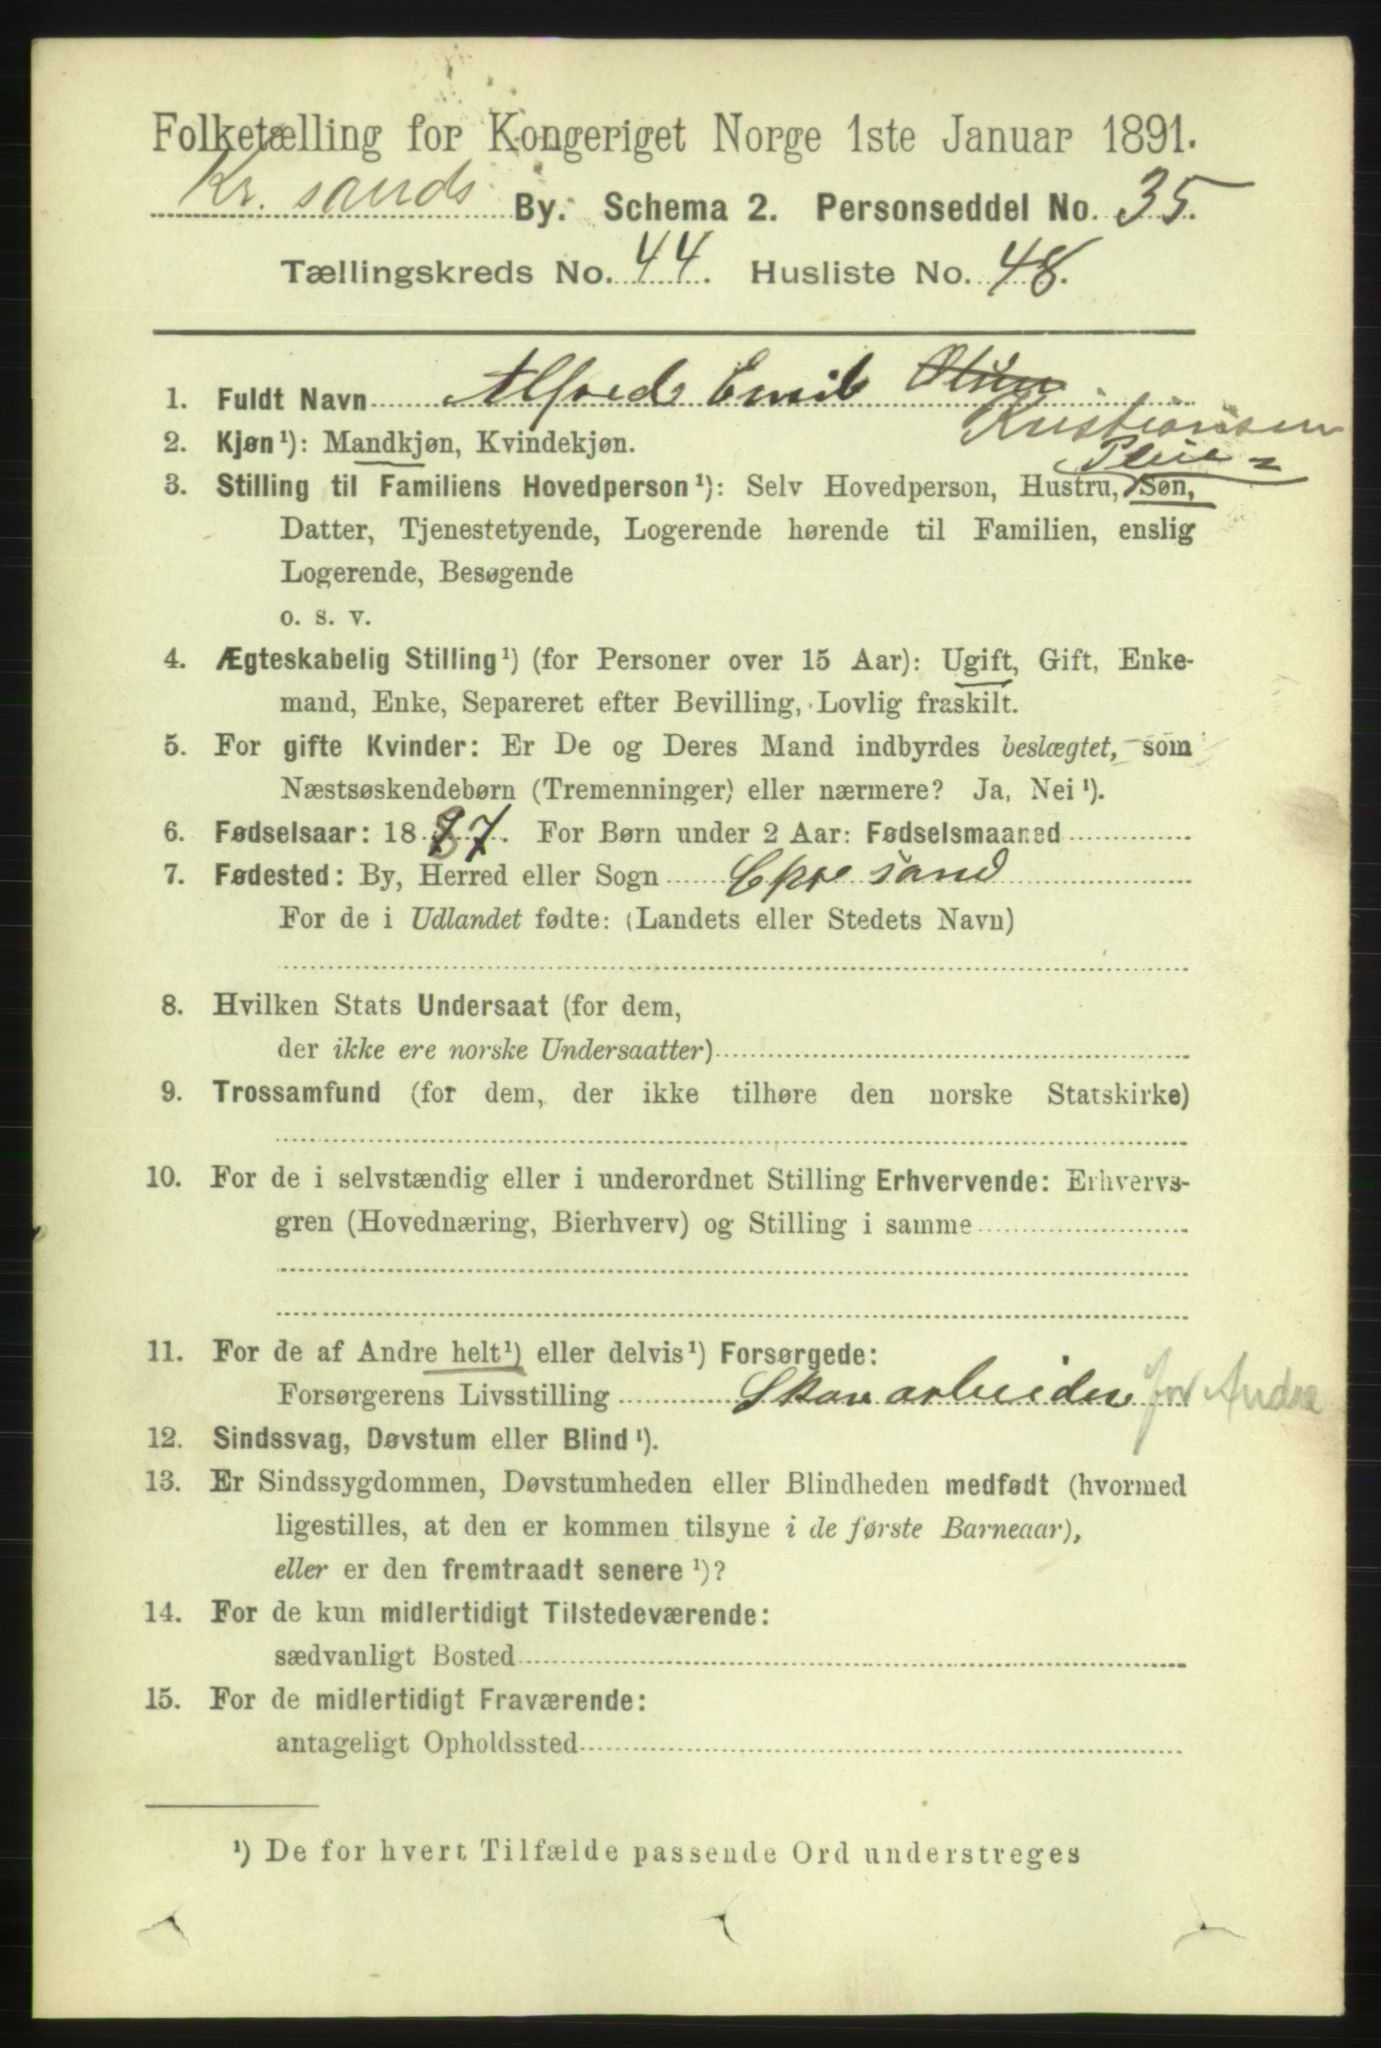 Folketælling for Kongeriget Norge 1ste Januar 1891.
Kr. sands By. Schema 2. Personseddel No. 35.
Tællingskreds No. 44. Husliste No. 48.
1. Fuldt Navn Alfred Emil Olsen
Kristiansen
2. Kjøn¹): Mandkjøn, Kvindekjøn.
Pleie-
3. Stilling til Familiens Hovedperson¹): Selv Hovedperson, Hustru, Søn,
Datter, Tjenestetyende, Logerende hørende til Familien, enslig
Logerende, Besøgende
o. s. v.
4. Ægteskabelig Stilling¹) (for Personer over 15 Aar): Ugift, Gift, Enke-
mand, Enke, Separeret efter Bevilling, Lovlig fraskilt.
5. For gifte Kvinder: Er De og Deres Mand indbyrdes beslægtet, som
Næstsøskendebørn (Tremenninger) eller nærmere? Ja, Nei¹).
6. Fødselsaar: 1887. For Børn under 2 Aar: Fødselsmaaned
7. Fødested: By, Herred eller Sogn Chr sand
For de i Udlandet fødte: (Landets eller Stedets Navn)
8. Hvilken Stats Undersaat (for dem,
der ikke ere norske Undersaatter)
9. Trossamfund (for dem, der ikke tilhøre den norske Statskirke)
10. For de i selvstændig eller i underordnet Stilling Erhvervende: Erhvervs-
gren (Hovednæring, Bierhverv) og Stilling i samme
11. For de af Andre helt¹) eller delvis¹) Forsørgede:
Forsørgerens Livsstilling Skoarbeider for Andre
12. Sindssvag, Døvstum eller Blind¹).
13. Er Sindssygdommen, Døvstumheden eller Blindheden medfødt (hvormed
ligestilles, at den er kommen tilsyne i de første Barneaar),
eller er den fremtraadt senere¹)?
14. For de kun midlertidigt Tilstedeværende:
sædvanligt Bosted
15. For de midlertidigt Fraværende:
antageligt Opholdssted
¹) De for hvert Tilfælde passende Ord understreges